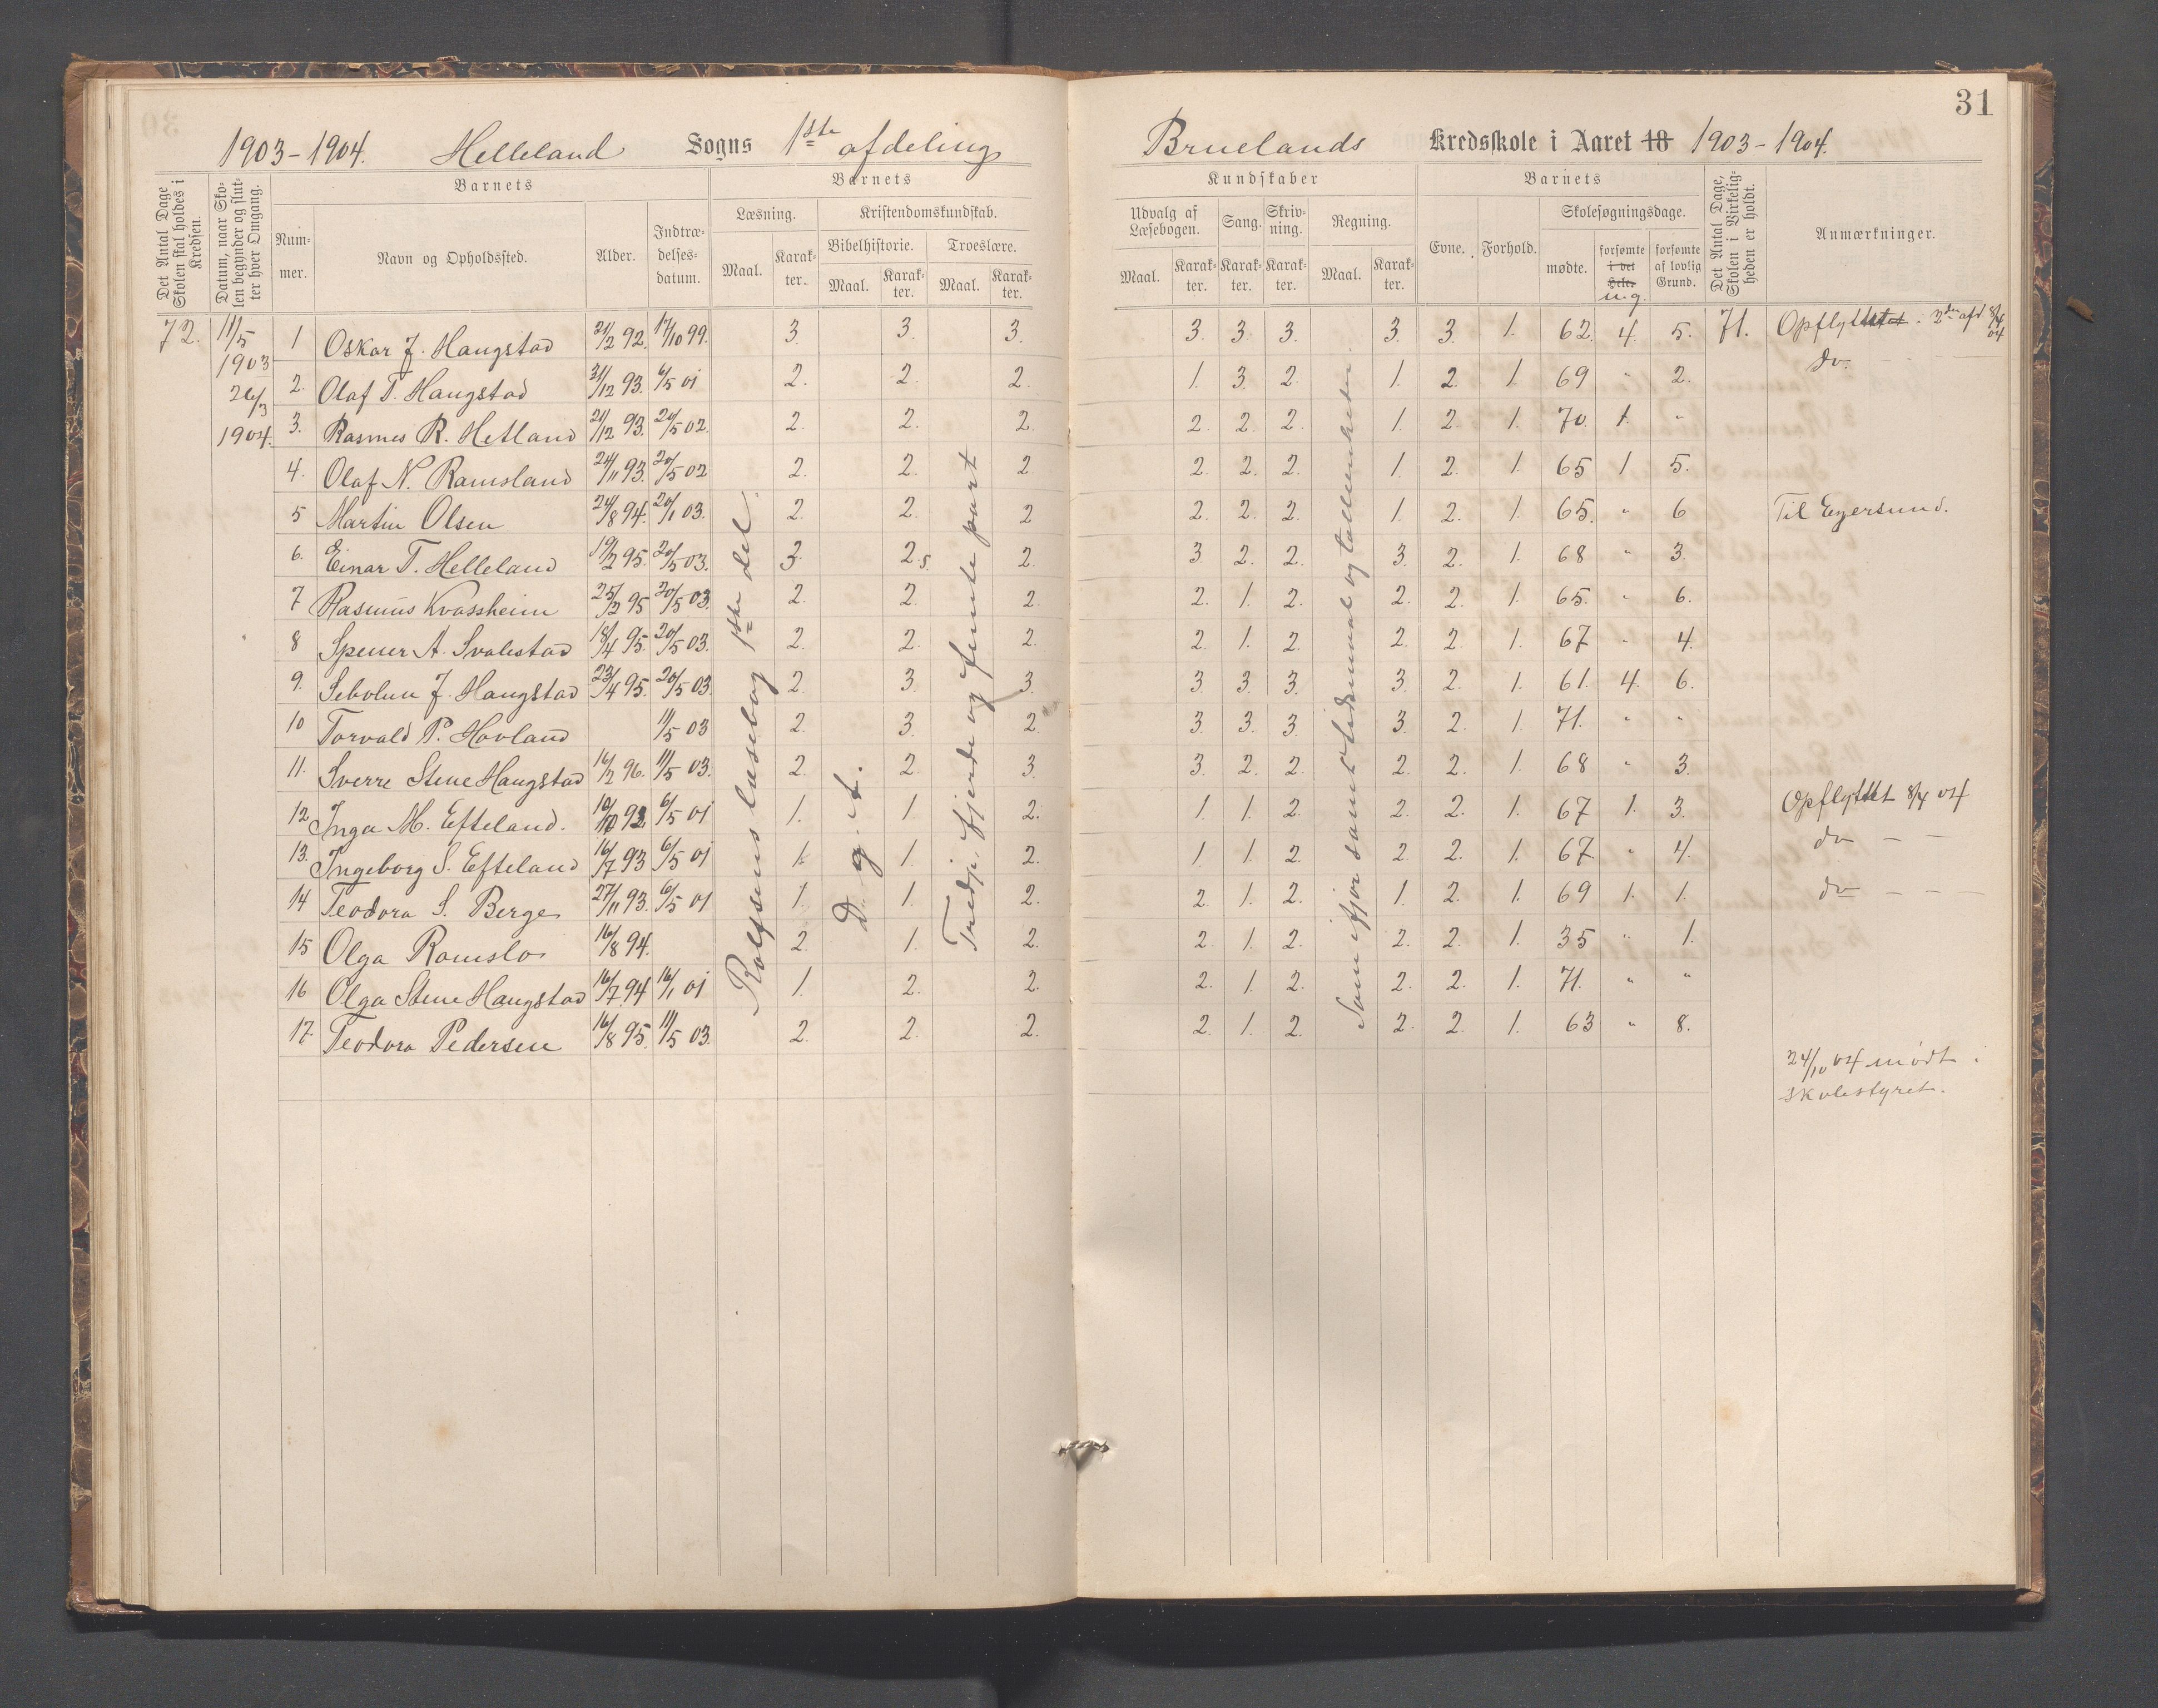 31
1903-1904. Helleland Sogns 1ste afdeling Bruelands Kredsskole i Aaret 18 1903-1904.
Det Antal Dage Skolen skal holdes i Kredsen.
Datum, naar Skolen begynder og slutter hver Omgang.
Barnets
Nummer.
Navn og Opholdssted.
Alder.
Indtrædelsesdatum.
Barnets
Læsning.
Maal.
Karakter.
Kristendomskundskab.
Bibelhistorie.
Maal.
Karakter.
Troeslære.
Maal.
Karakter.
Kundskaber
Udvalg af Læsebogen.
Maal.
Karakter.
Sang.
Karakter.
Skrivning.
Karakter.
Regning.
Maal.
Karakter.
Barnets
Evne.
Forhold.
Skolesøgningsdage.
mødte.
forsømte i det Hele.
u. g.
forsømte af lovlig Grund.
Det Antal Dage, Skolen i Virkeligheden er holdt.
Anmærkninger.
72. 11/5 1903 26/3 1904.
1 Oskar J. Haugstad 21/2 92. 17/10 99. 3. 3. 3. 3. 3. 3. 3. 3. 1. 62. 4. 5. 71. Opflyttet. 2den afd 8/4 04
2. Olaf T. Haugstad 31/12 93. 6/5 01 2. 2. 2. 1. 3. 2. 1. 2. 1. 69 " 2. do. - - -
3. Rasmus R. Hetland 21/12 93. 20/5 02. 2. 2. 2. 2. 2. 2. 1. 2. 1. 70. 1. "
4. Olaf N. Ramsland 24/11 93. 20/5 02 2. 2. 2. 2. 2. 2. 1. 2. 1. 65 1 5.
5 Martin Olsen 24/8 94. 20/1 03. 2. 2. 2 2. 2. 2. 1. 2. 1. 65. " 6 Til Egersund.
6. Einar T. Helleland 19/2 95. 20/5 03. 3. 2.5 2. 3 2. 2. 3. 2. 1. 68 " 3.
7 Rasmus Kvassheim 25/2 95 20/5 03. 2. 2. 2. 2. 1. 2. 2. 2. 1. 65. " 6.
8 Spener A. Svalestad 18/4 95. 20/5 03. 2. 2. 2. 2. 1. 2. 2. 2. 1. 67 " 4.
9. Sebolun J. Haugstad 23/4 95. 20/5 03. 2. 3. 3. 3. 3. 3. 3. 2. 1. 61. 4. 6.
10 Torvald P. Hovland 11/5 03 2. 3. 2. 3. 3. 3. 3. 2. 1. 71. " "
11. Sverre Stene Haugstad 16/2 96. 11/5 03. 2. 2. 3. 3. 2. 2. 2. 2. 1. 68 " 3.
12. Inga M. Efteland. 10/10 92 6/5 01 1. 1. 2. 1 1. 2. 2. 2. 1. 67 1. 3. Opflyttet 8/4 04
13. Ingeborg S. Efteland 16/7 93 6/5 01 1. 1. 2. 1 1. 2. 2. 2. 1. 67 " 4. do - -
14 Teodora S. Berge 27/11 93. 6/5 01 1. 1. 2. 2 1. 2. 1. 2. 1. 69 1. 1. do - - -
15 Olga Ramslo 16/8 94. 2. 1. 2. 2. 1. 2. 2. 2. 1. 35 " 1.
16 Olga Stene Haugstad 16/7 94 16/1 01 1. 2. 2. 2. 1. 2. 2. 2. 1. 71. " "
17. Teodora Pedersen 16/8 95. 11/5 03. 2. 2. 2. 2. 1. 2. 2. 2. 1. 63 " 8.
Rolfsens læsebog 1ste del.
D. g. t.
Tredje, fjerde og femte part
Som ifjor samt tidsmaal og tallenheder.
24/10 04 mødt i
skolestyret.